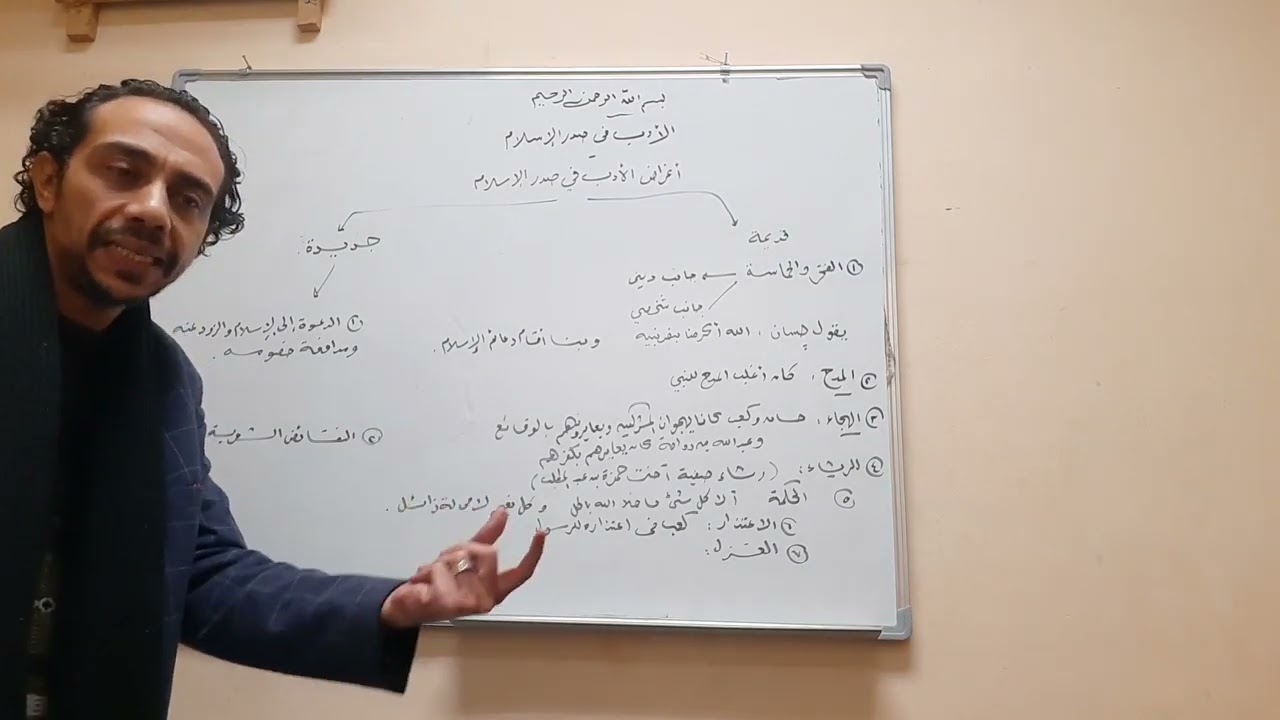 بسم الله الرحمن الرحيم
الأدب في صدر الإسلام
أغراض الأدب في صدر الإسلام
قديمة
① الفخر والحماسة
جانب ديني
جانب شخصي
يقول حسان : الله أكرمنا بنصر نبيه وبنا أقام دعائم الإسلام .
② المدح : كان أغلب المدح للنبي
③ الهجاء : حسان وكعب كانا يهجوان المشركين ويعايرونهم بالوقائع
وعبد الله بن رواحة كان يعايرهم بكفرهم
④ الرثاء : ( رثاء صفية أخت حمزة بن عبد المطلب )
⑤ الحكمة ألا كل شئ ما خلا الله باطل وكل نعيم لا محالة زائل .
⑥ الاعتذار : كعب في اعتذاره للرسول
⑦ الغزل :
جديدة :
① الدعوة إلى الإسلام والرد عنه
ومدافعة خصومه .
② النقائض الشعرية